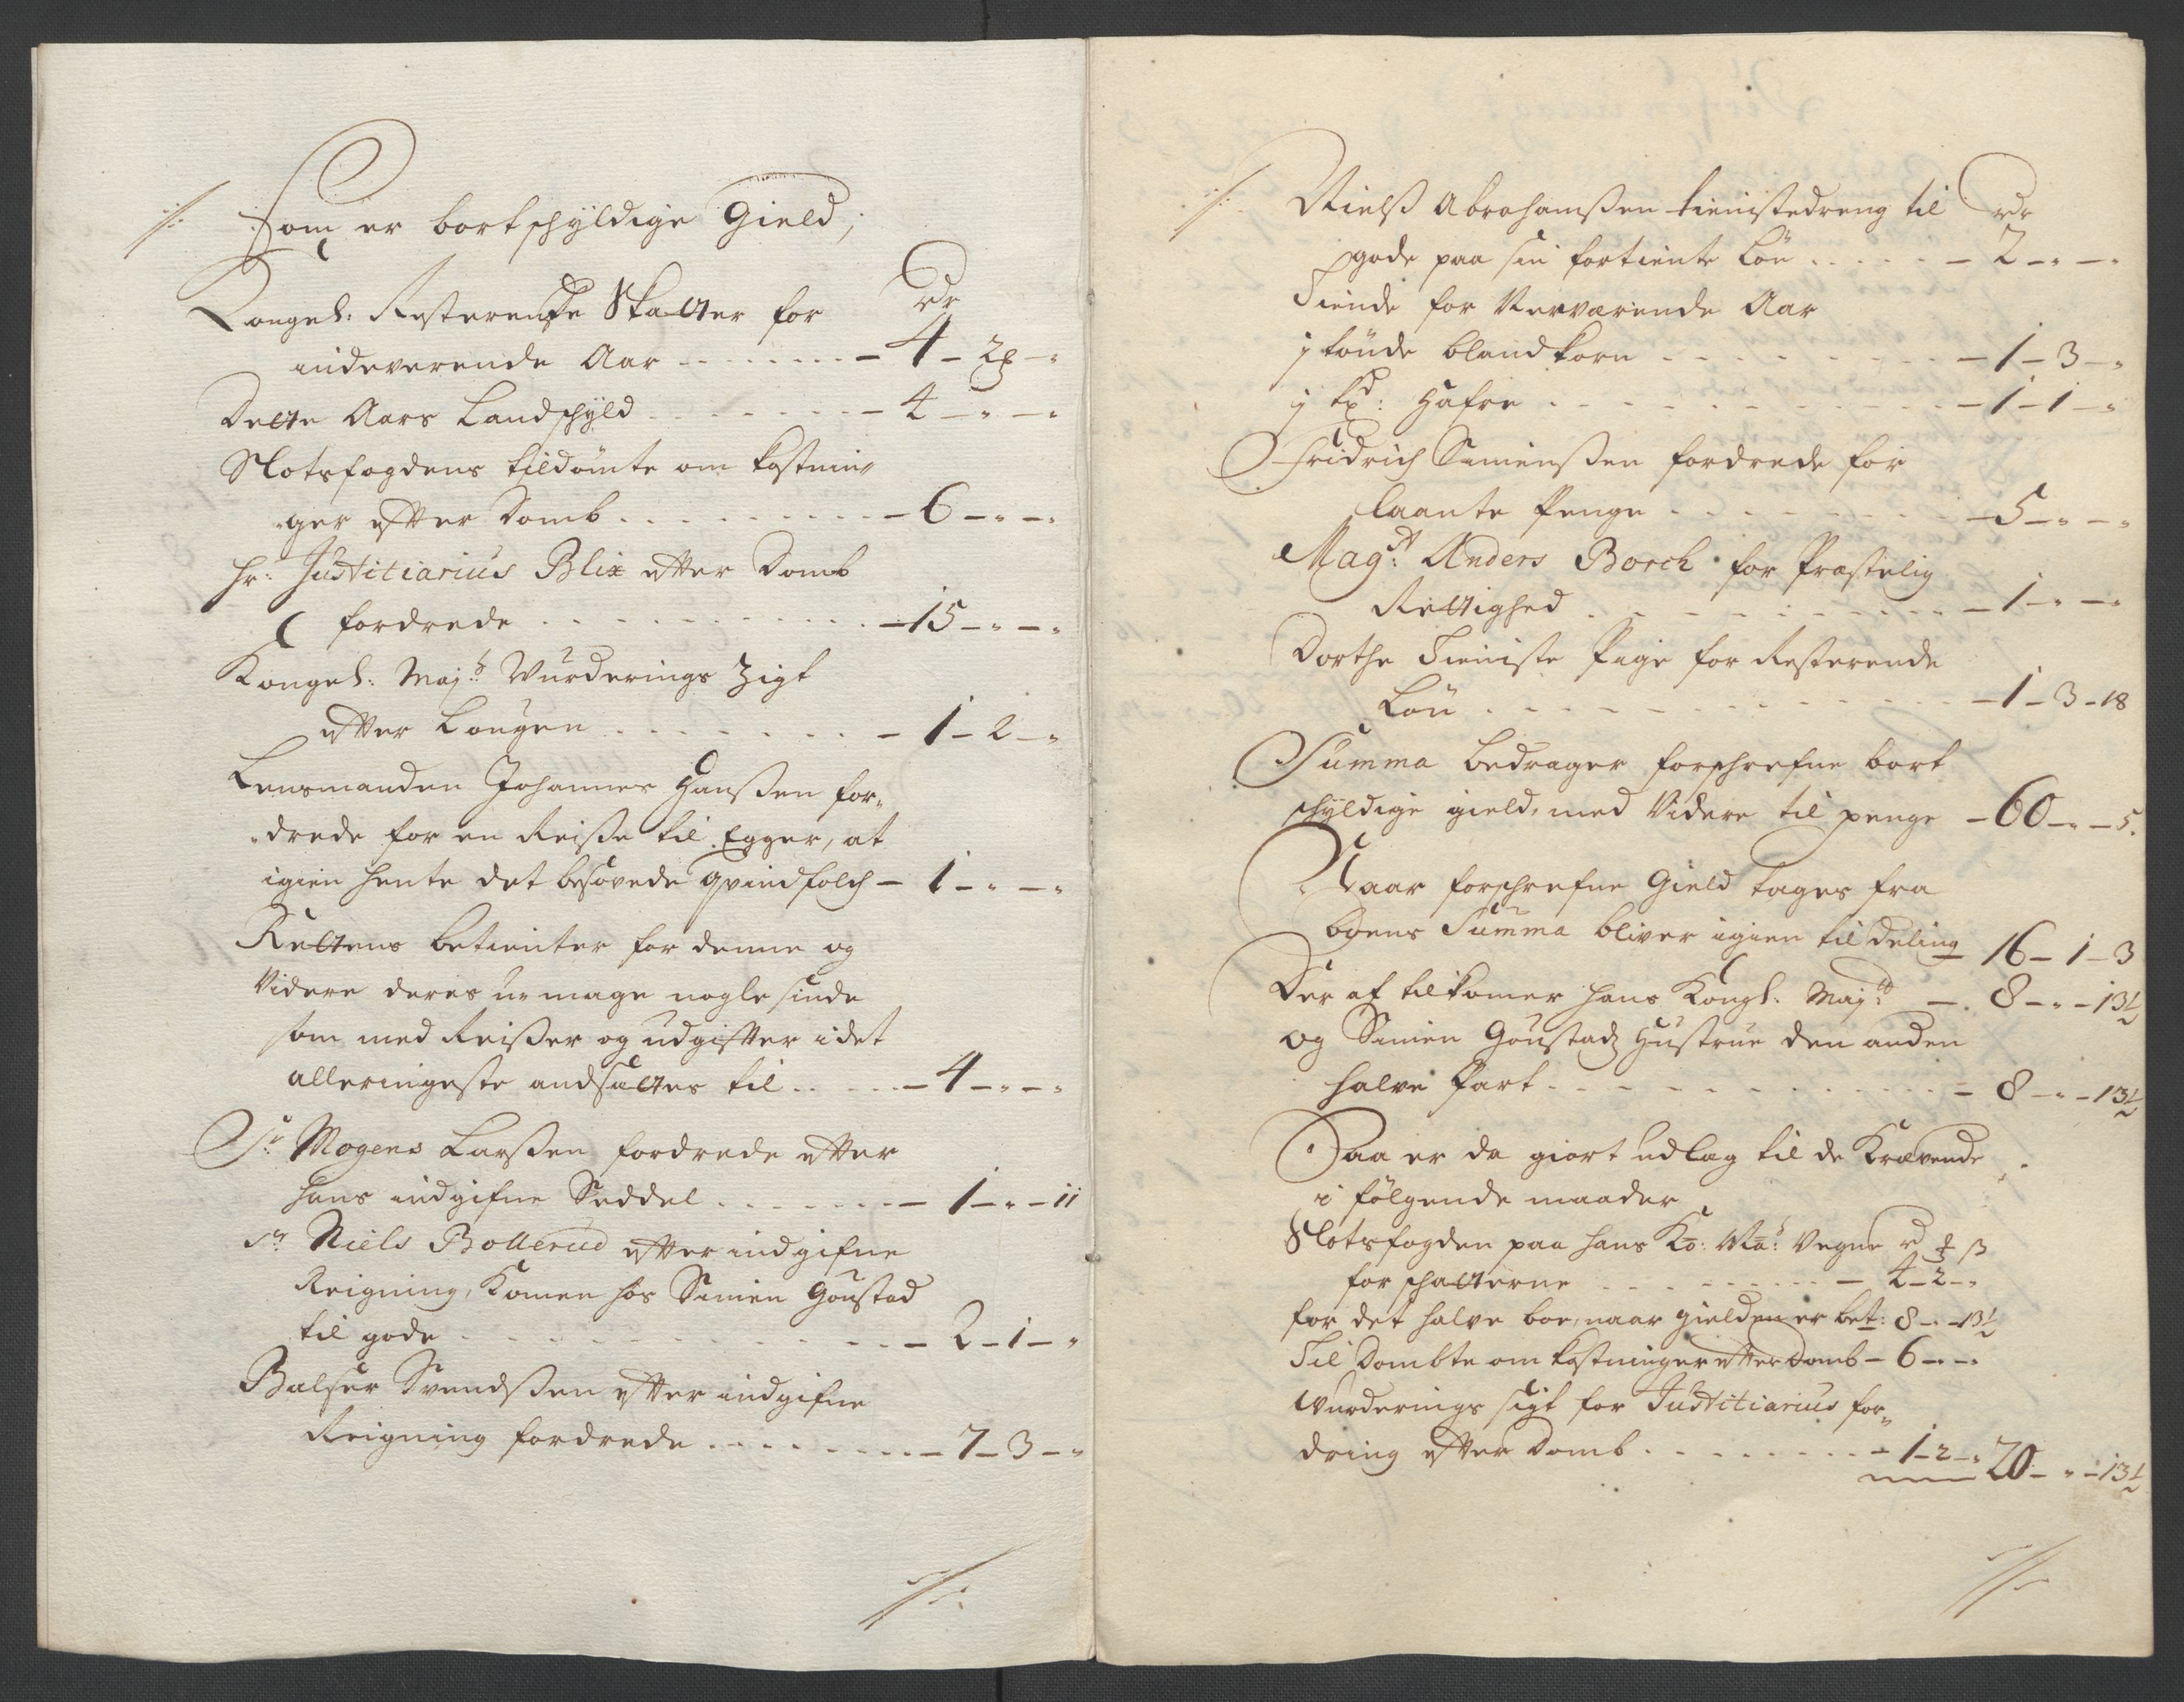 Som er bortschyldige Gield,
Rdr
Kongel: Resterende Skatter for
indeverende Aar - 4 - 2 -
Dette Aars Landschyld - 4 - -
Slotsfogdens tildömte om kostnin
ger efter Domb - 6 - -
hr: Justitiarius Blix efter Domb
fordrede - 15 - -
Kongel: Maj:ts Vurderings Zigt
efter Lougen - 1 - 2 -
Lensmanden Johannes Hanssen for-
drede for en Reisse til Egger, at
igien hente det besovede qvindfolch - 1 - -
Rettens betienter for denne og
Videre deres u-mage nogle sinde
som med Reisser og udgifter i det
alleringeste andsættes til - 4 - -
Sr: Mogens Larssen fordrede efter
hans indgifne Seddel - 1 - - 11
Sr: Niels Bollerud efter indgifne
Reigning, Komen hos Simen Goustad
til gode - 2 - 1 -
Balser Svendssen efter indgifne
Reigning fordrede - 7 - 3 -
Nielss Abrahamssen tienistedreng til Rdr
gode paa sin fortiente Lön - 2 - -
Tiende for Nerværende Aar
j tönde blandkorn - 1 - 3 -
j td: Hafre - 1 - 1 -
Fridrich Simenssen fordrede for
laante Penge - 5 - -
Mag:st Anders Borch for Præstelig
Rettighed - 1 - -
Dorthe Tieniste Pige for Resterende
Lön - 1 - 3 - 18
Summa bedrager forschrefne bort
schyldige gield, med Videre til penge - 60 - - 5.
Naar forschrefne Gield tages fra
boens Summa bliver igien til deling 16 - 1 - 3
Der af tilkomer hans Kongl: Maj:tt - 8 - - 13½
og Simen Goustads Hustrue den anden
halve Part - 8 - - 13½
Saa er da giort udlag til de Krævende
i fölgende maader
Slotsfogden paa hans Ko: Ma: Vegne rd ß
for schatterne - 4 - 2 -
for det halve boe, naar gielden er bet: 8 - - 13½
Til Dombte om kostninger efter Domb - 6 - -
Wurderings sigt for Justitiarius for-
dring efter Domb - 1 - 2 - 20 - - 13½